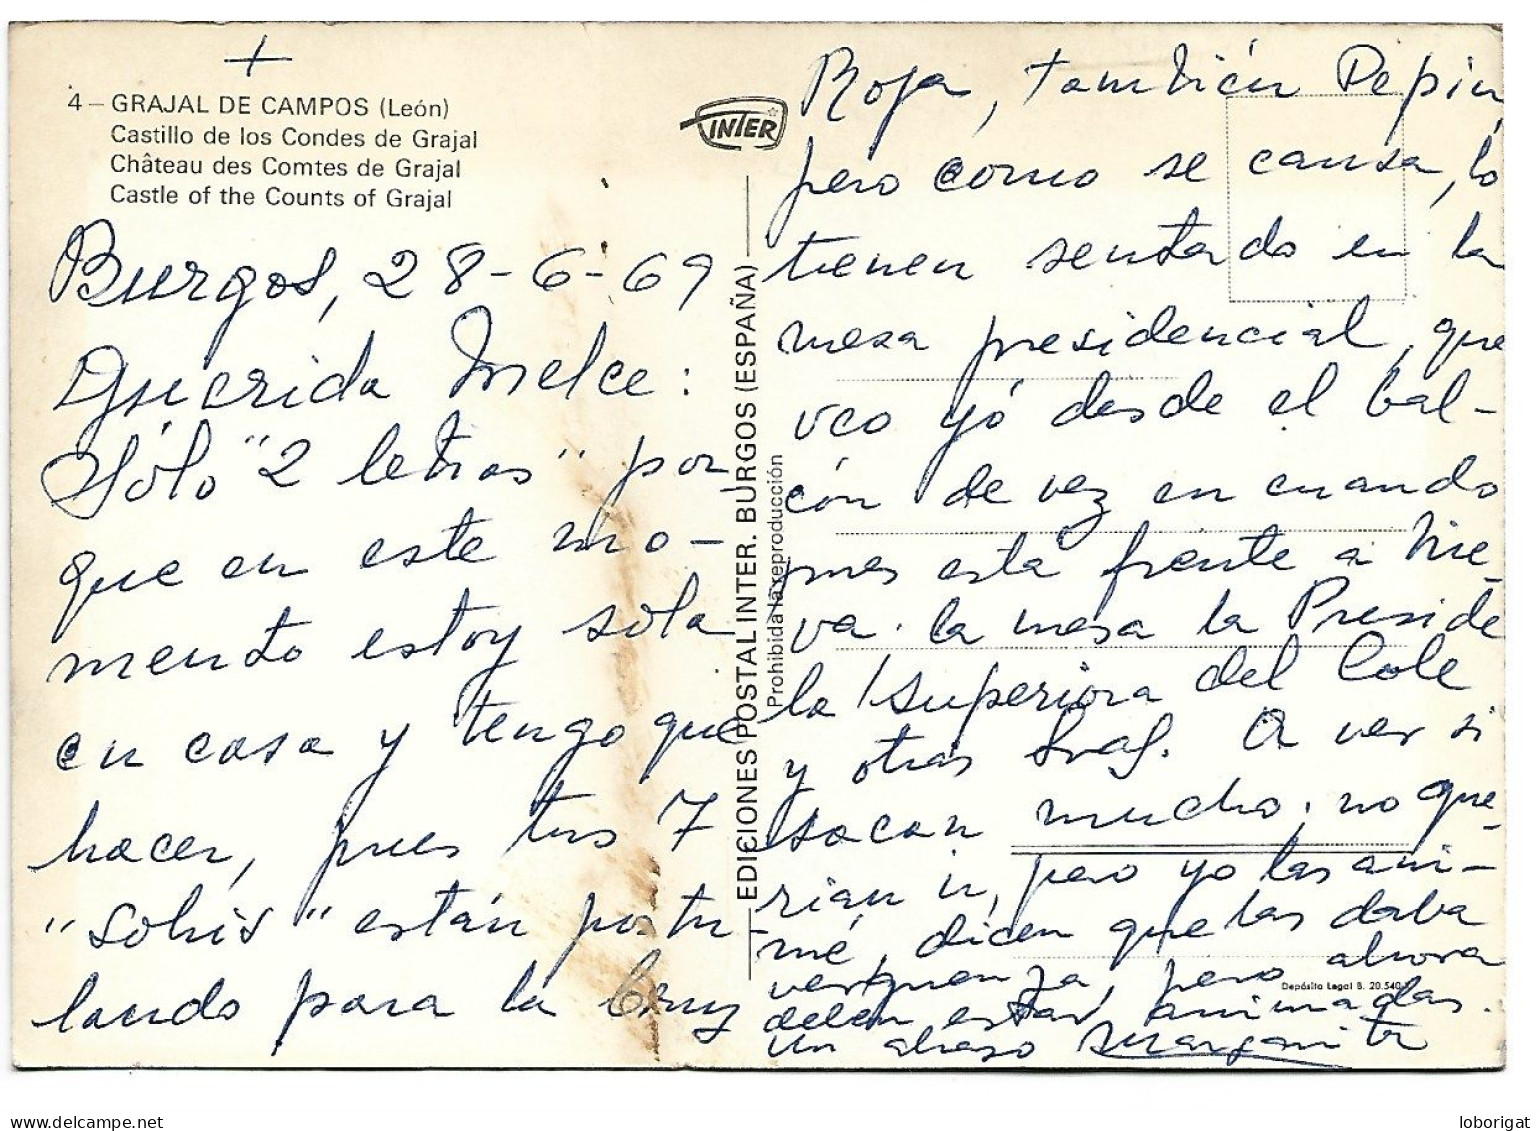 +
4 – GRAJAL DE CAMPOS (León)
Castillo de los Condes de Grajal
Château des Comtes de Grajal
Castle of the Counts of Grajal
INTER
Burgos, 28-6-69
Querida Melce:
Sólo "2 letras" por
que en este mo-
mento estoy sola
en casa y tengo que
hacer, pues tus 7
"sohis" están postu-
lando para la Cruz
EDICIONES POSTAL INTER. BURGOS (ESPAÑA)
Prohibida la reproducción
Roja, también Pepin,
pero como se cansa, lo
tienen sentado en la
mesa presidencial, que
veo yó desde el bal-
cón de vez en cuando
pues está frente a Nue-
va. la mesa la Preside
la Superiora del Cole
y otras Sras. A ver si
sacan mucho. no que-
rian ir, pero yo las ani-
mé, dicen que las daba
verguenza, pero ahora
deben estar animadas.
un abrazo Margarita
Depósito Legal B. 20.540
loborigat